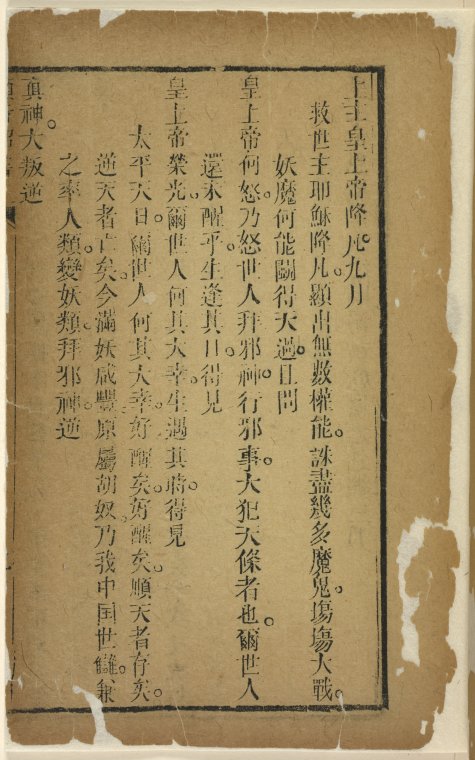 上主皇上帝降凡。九月
救世主耶穌降凡。顯出無數權能。誅盡幾多魔鬼。塲塲大戰。
妖魔何能鬭得天過。且問
皇上帝何怒。乃怒世人拜邪神。行邪事。大犯天條者也。爾世人
還未醒乎。生逢其日。得見
皇上帝榮光。爾世人何其大幸。生遇其時。得見
太平天日。爾世人何其大幸。好醒矣。好醒矣。順天者存矣。
逆天者亡矣。今滿妖咸豐。原屬胡奴。乃我中囯世讎。兼
之率人類變妖類。拜邪神。逆
真神。大叛逆